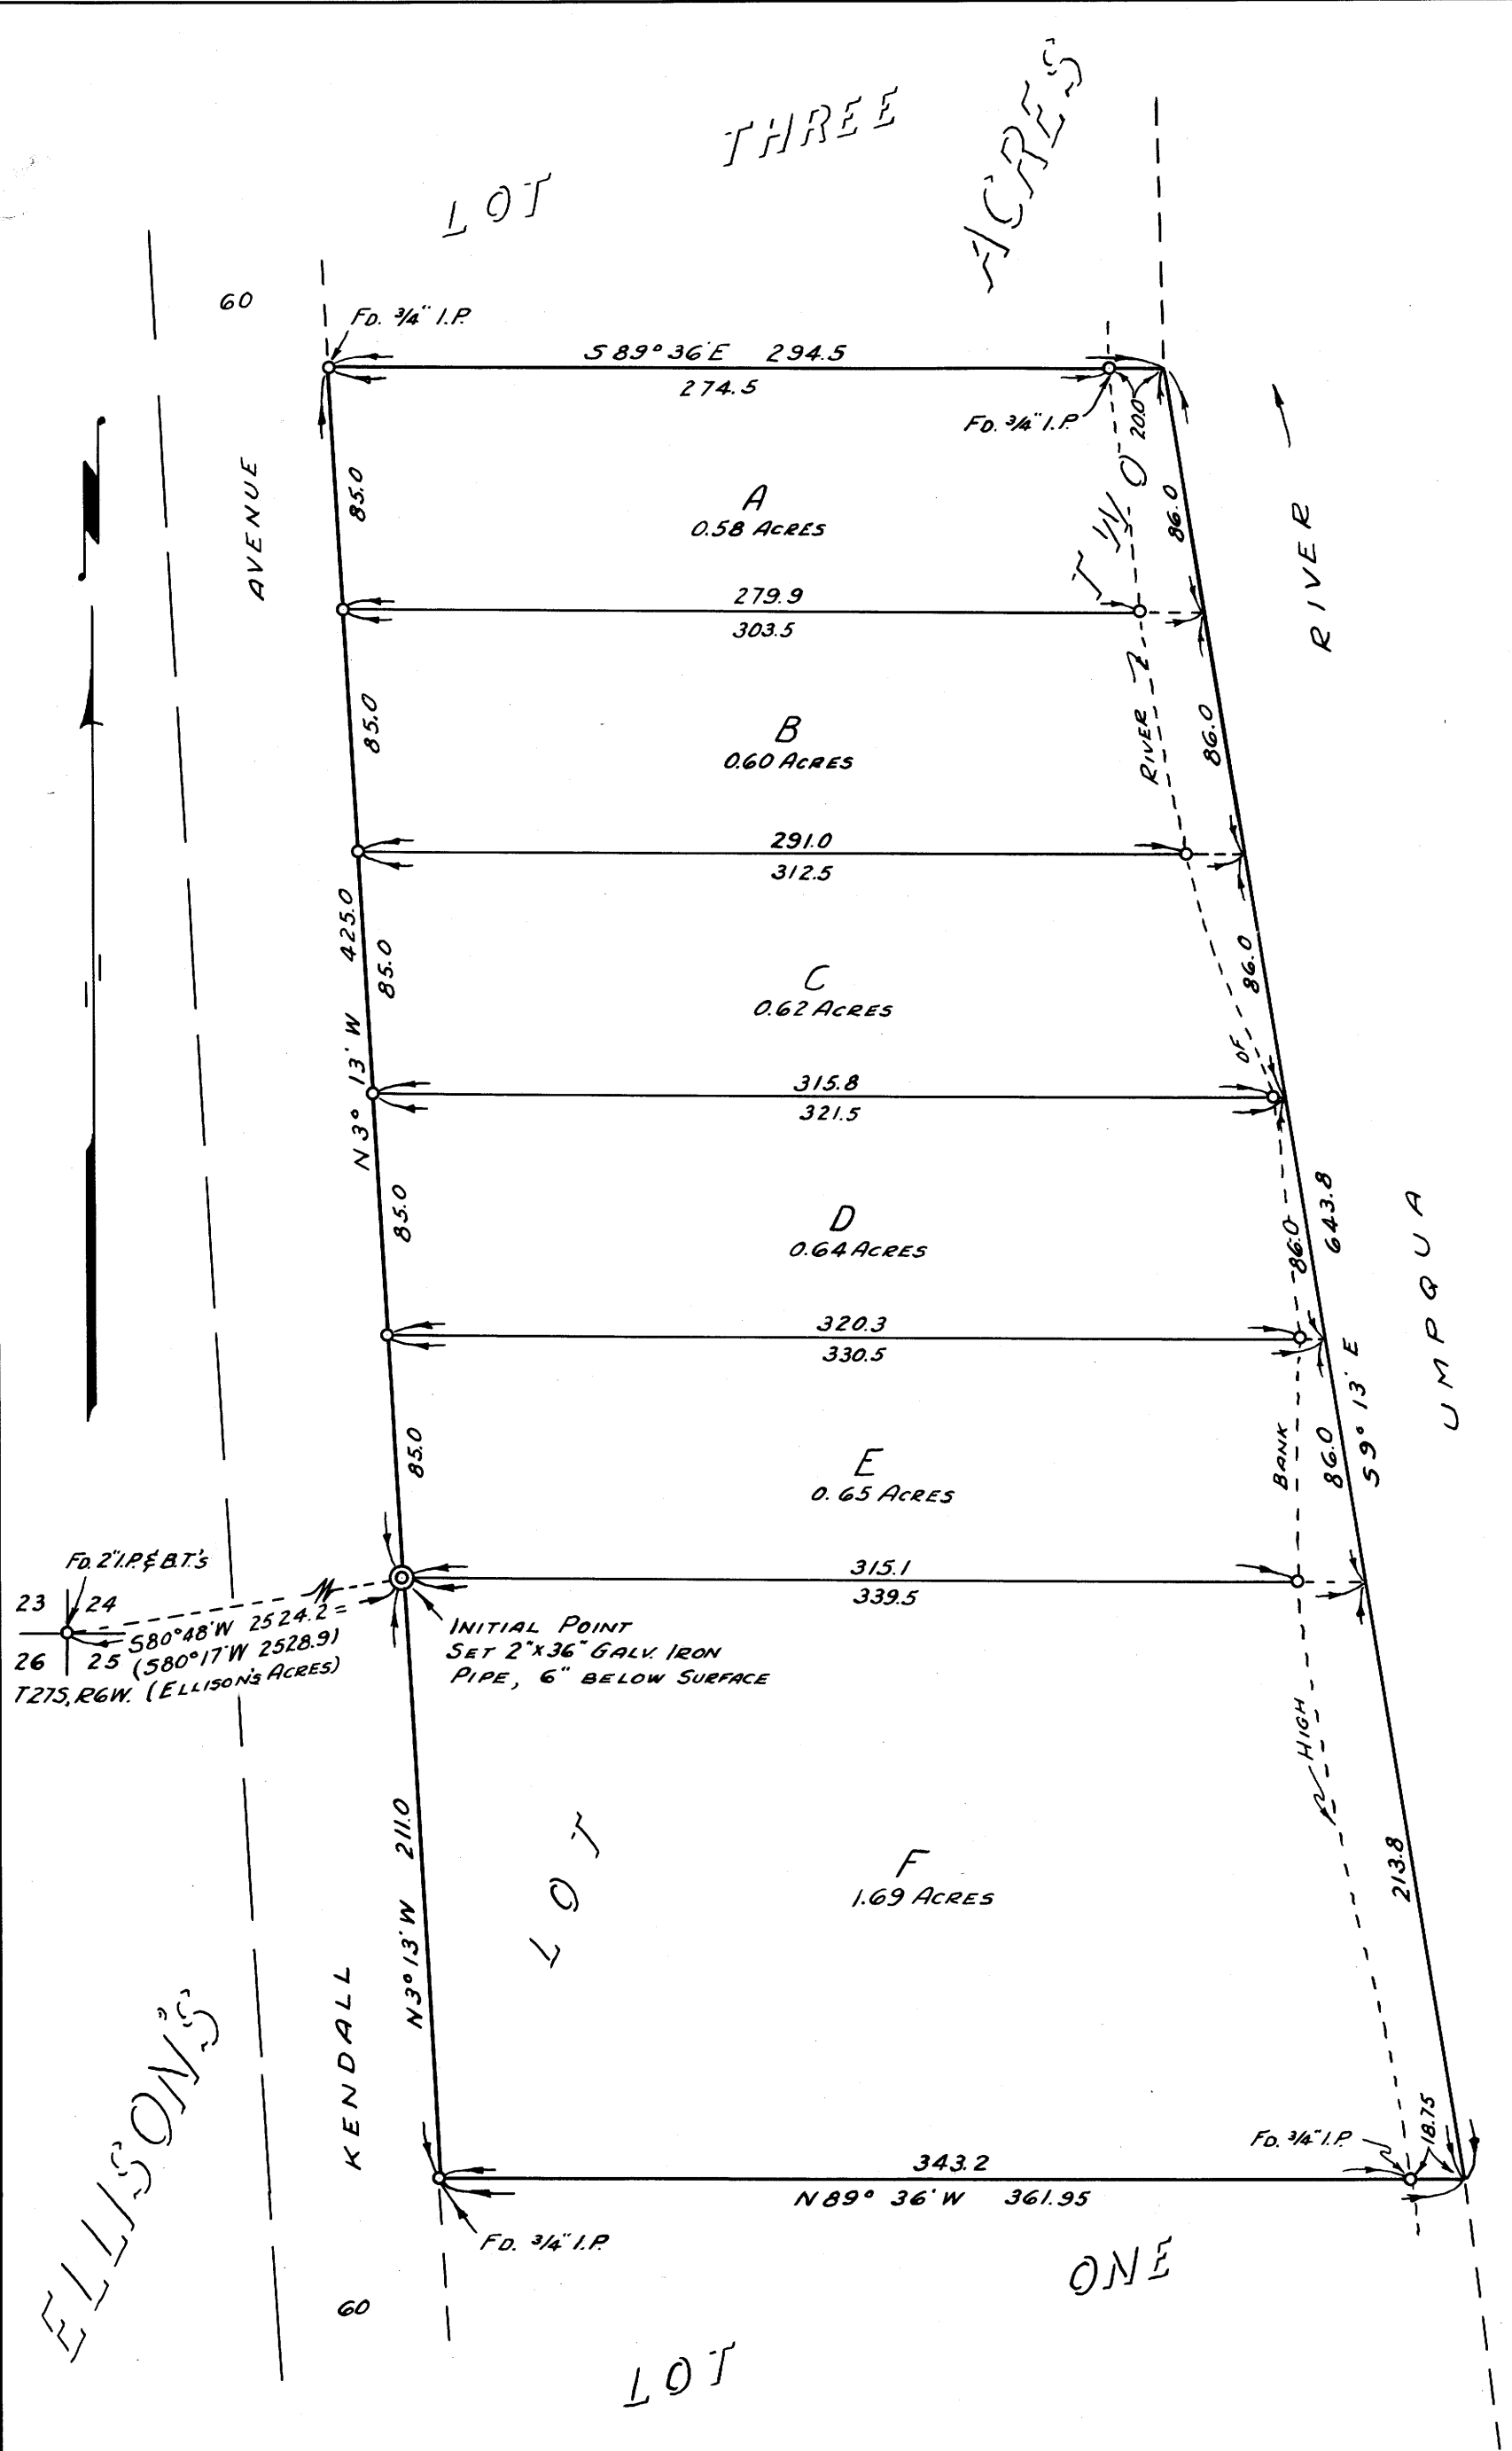 LOT THREE
ACRES
60
FD. 3/4" I.P.
S 89° 36' E 294.5
274.5
FD. 3/4" I.P.
20.0
AVENUE
85.0
A
0.58 ACRES
TWO
86.0
RIVER
279.9
303.5
85.0
B
0.60 ACRES
RIVER
86.0
291.0
312.5
N 3° 13' W 425.0
85.0
C
0.62 ACRES
OF
86.0
315.8
321.5
85.0
D
0.64 ACRES
86.0
643.8
UMPQUA
320.3
330.5
85.0
E
0.65 ACRES
BANK
86.0
S 9° 13' E
FD. 2" I.P. & B.T.'s
23 24
26 25
S80°48'W 2524.2 =
(S80°17'W 2528.9)
T27S, R6W. (ELLISON'S ACRES)
315.1
339.5
INITIAL POINT
SET 2"x36" GALV. IRON
PIPE, 6" BELOW SURFACE
HIGH
N3°13'W 211.0
LOT
F
1.69 ACRES
213.8
KENDALL
ELLISON'S
FD. 3/4" I.P.
18.75
343.2
N 89° 36' W 361.95
FD. 3/4" I.P.
60
LOT ONE